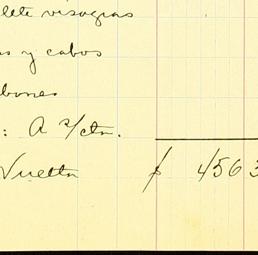 lete visagras
as y cabos
bones
: A s/cta.
Vuelta $ 4563